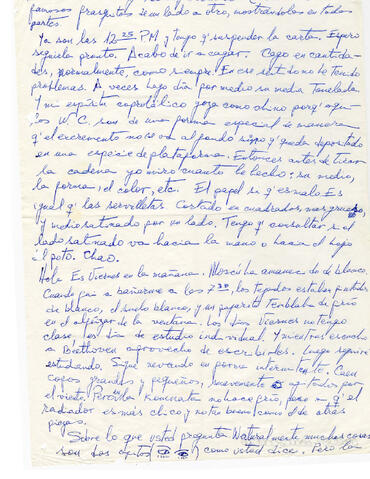 famosos frasquitos de un lado a otro, mostrándolos en todas
partes.
Ya son las 12,25 PM y tengo q' suspender la carta. Espero
seguirla pronto. Acabo de ir a cagar. Cago en cantida-
des, normalmente, como siempre. En ese sentido no he tenido
problemas. A veces hago día por medio su media tonelada
y mi espíritu coprofílico goza como chino porq' aquí
los W.C. son de una forma especial de manera
q' el excremento no se va al fondo sino q' queda depositado
en una especie de plataforma. Entonces antes de tirar
la cadena yo miro cuanto he hecho: su medio,
la forma, el color, etc. El papel si q' es malo. Es
igual q' las servilletas. Cortado en cuadrados, mas grueso,
y medio satinado por un lado. Tengo q' consultar si el
lado satinado va hacia la mano o hacia el hoyo
del poto. Chao.
Hola. Es Viernes en la mañana. Moscú ha amanecido de blanco.
Cuando fui a bañarme a las 7,30, los tejados estaban pintados
de blanco, el suelo blanco, y un pajarito temblaba de frío
en el alféizar de la ventana. Los días Viernes no tengo
clase. Los día de estudio individual. Y mientras escucho
a Beethoven aprovecho de escribirles. Luego seguiré
estudiando. Sigue nevando en forma intermitente. Caen
copos grandes y pequeños, suavemente agitados por
el viento. Pero en la Komnata no hace frío, pero q' el
radiador es más chico y no tan bueno como el de otras
piezas.
Sobre lo que usted pregunta Naturalmente muchas cosas
son los éxitos ( ) como usted dice. Pero los